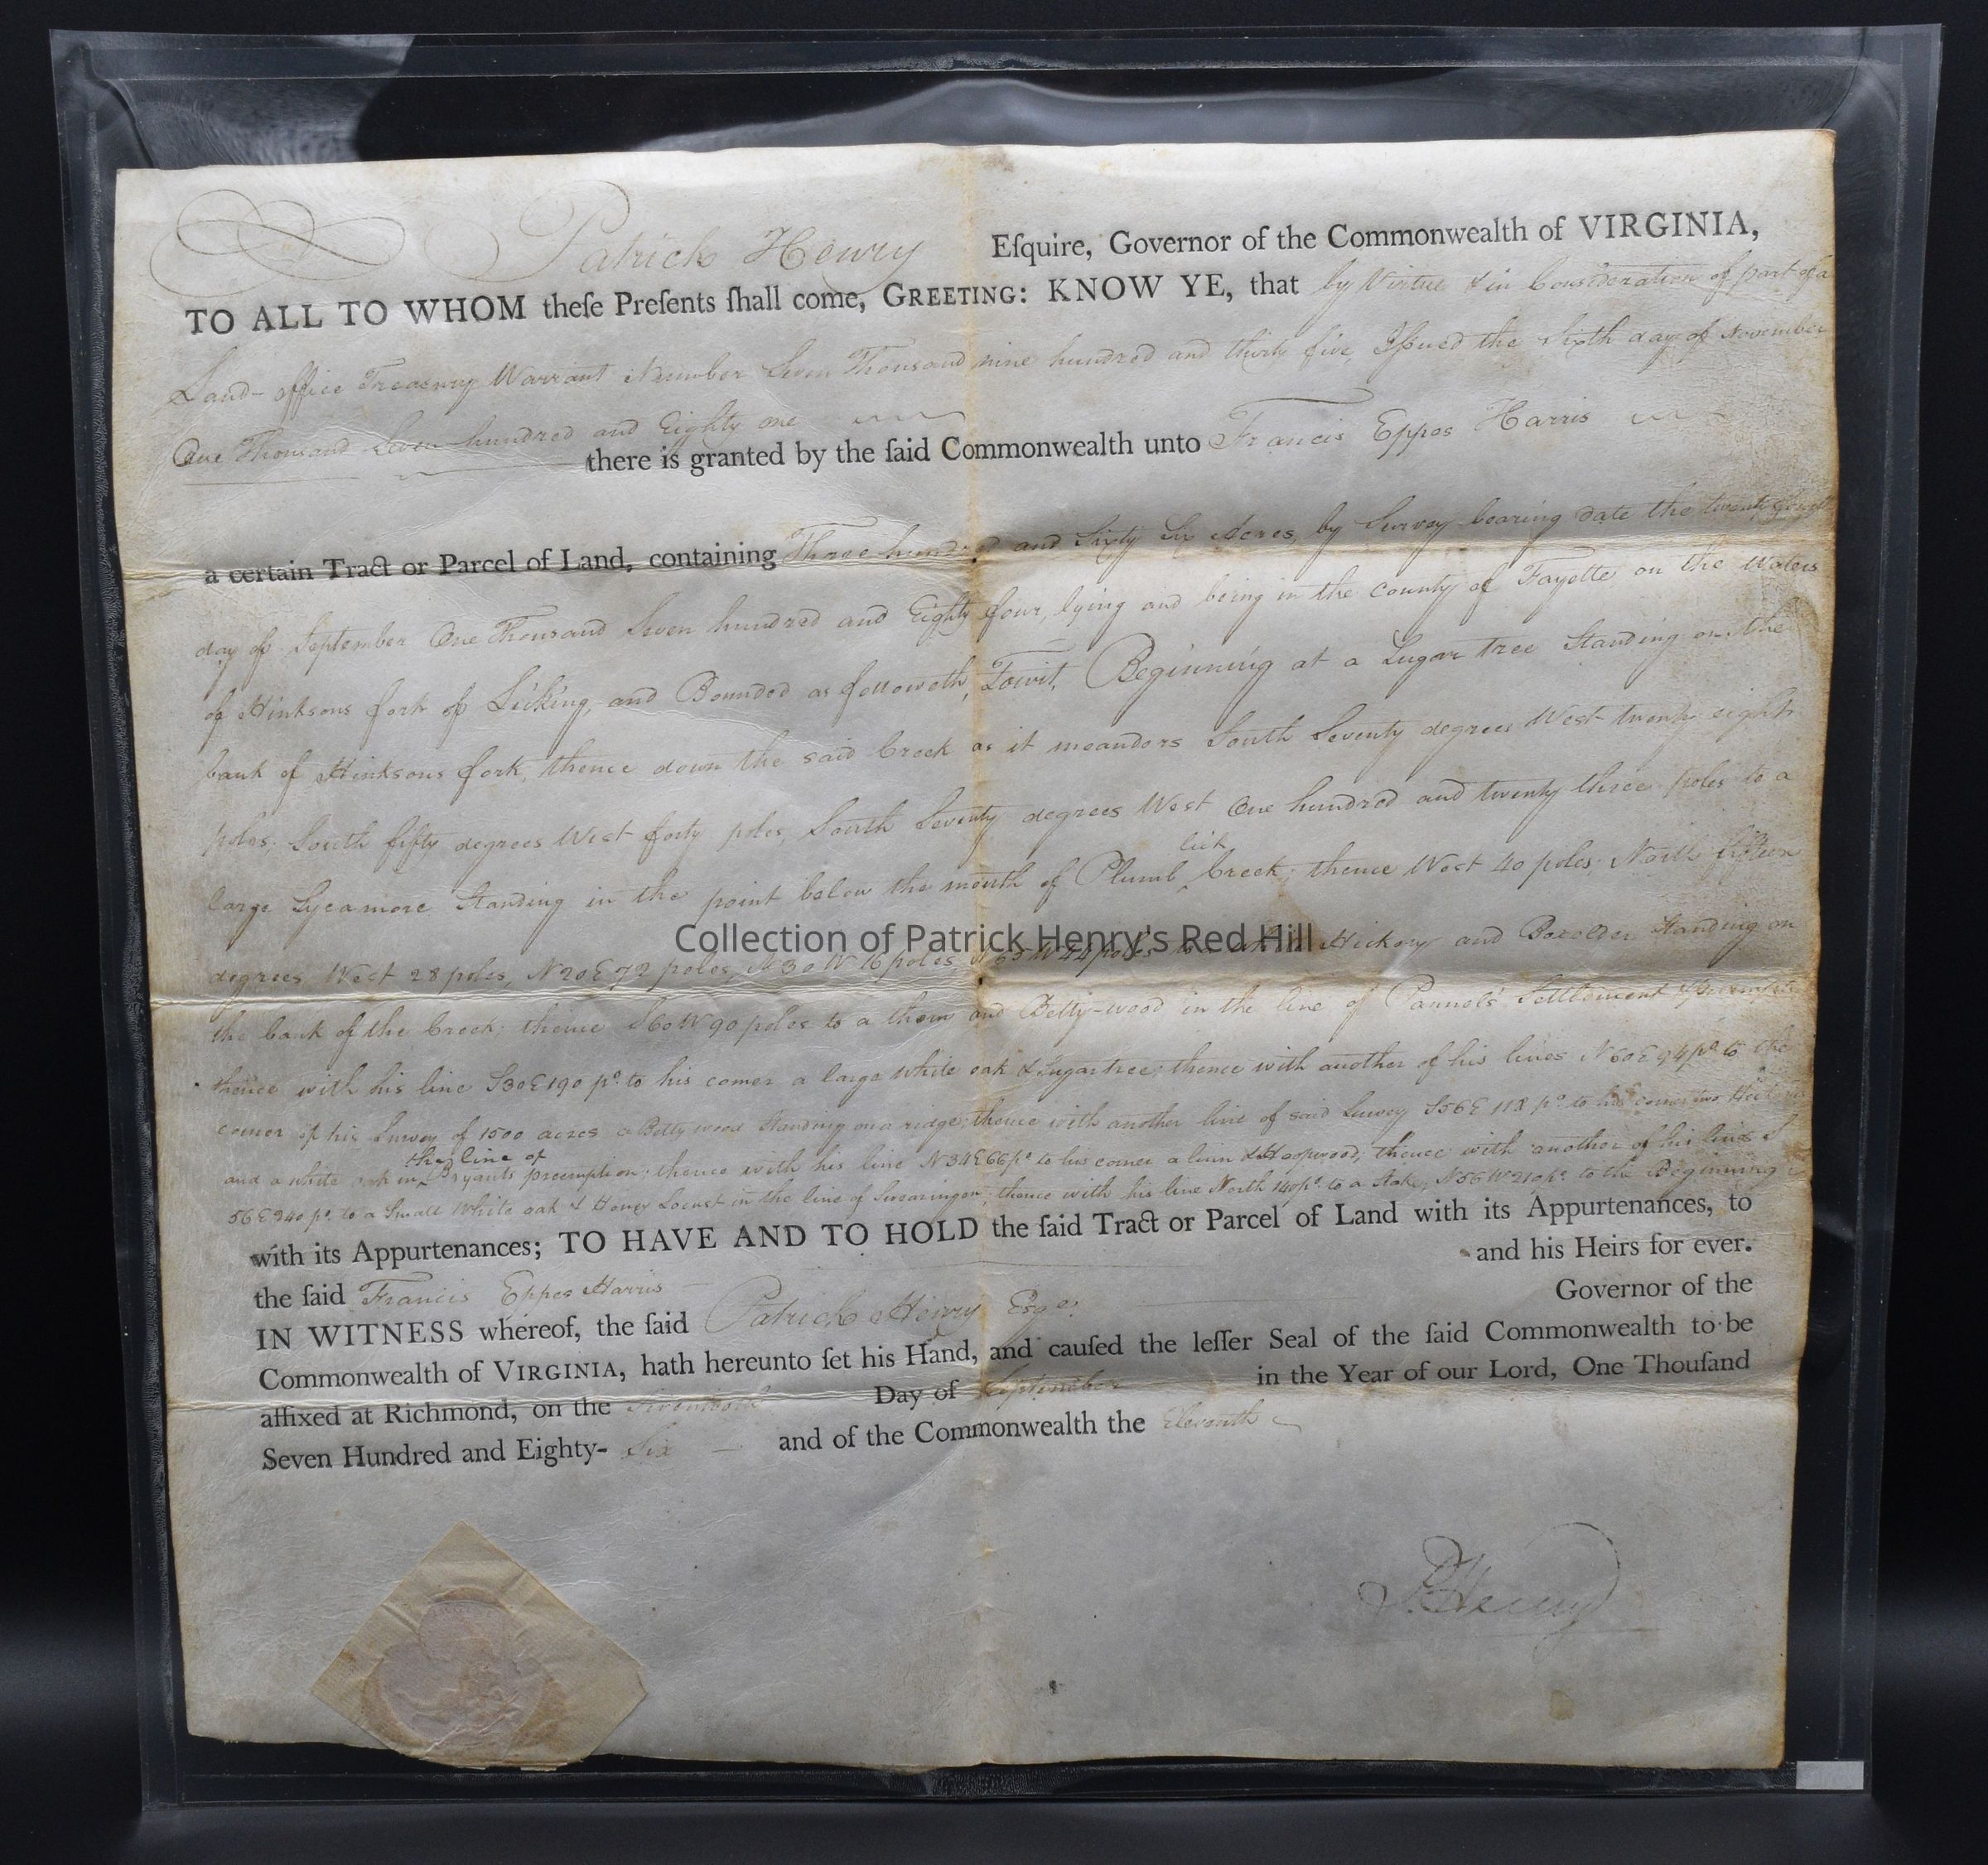 Patrick Henry Eſquire, Governor of the Commonwealth of VIRGINIA,
TO ALL TO WHOM theſe Preſents ſhall come, GREETING: KNOW YE, that by Virtue & in Consideration of part of a
Land-office Treasury Warrant Number Seven Thousand nine hundred and thirty five, Iſsued the Sixth day of November
One Thousand Seven hundred and Eighty one there is granted by the ſaid Commonwealth unto Francis Eppes Harris
a certain Tract or Parcel of Land, containing Three hundred and Sixty Six Acres, by Survey bearing date the twenty fourth
day of September One Thousand Seven hundred and Eighty four, lying and being in the county of Fayette on the Waters
of Hinksons fork of Licking, and Bounded as followeth, Towit, Beginning at a Sugar tree Standing on the
bank of Hinksons fork, thence down the said Creek as it meanders South Seventy degrees West twenty eight
poles, South fifty degrees West forty poles, South Seventy degrees West One hundred and twenty three poles to a
large Sycamore Standing in the point below the mouth of Plumb lick Creek; thence West 40 poles, North fifteen
degrees West 28 poles, N20E 72 poles, N30W 16 poles, 65 W 44 poles to a white Hickory and Boxelder Standing on
the bank of the Creek; thence S60W 90 poles to a thorn and Betty-wood in the line of Pannels' Settlement Preemption
thence with his line S30E 190 po. to his corner a large white oak & Sugartree; thence with another of his lines N60E 94 po. to the
corner of his Survey of 1500 acres a Betty wood Standing on a ridge; thence with another line of said Survey S56E 118 po. to his corner two Hickories
and a white oak in the line of Bryants preemption; thence with his line N34E 66 po. to his corner a linn & Hoopwood; thence with another of his lines S
56E 240 po. to a Small White oak & Honey Locust in the line of Swearingen; thence with his line North 140 po. to a Stake, N56W 210 po. to the Beginning
with its Appurtenances; TO HAVE AND TO HOLD the ſaid Tract or Parcel of Land with its Appurtenances, to
the ſaid Francis Eppes Harris and his Heirs for ever.
IN WITNESS whereof, the ſaid Patrick Henry Esqr. Governor of the
Commonwealth of VIRGINIA, hath hereunto ſet his Hand, and cauſed the leſſer Seal of the ſaid Commonwealth to be
affixed at Richmond, on the Day of September in the Year of our Lord, One Thouſand
Seven Hundred and Eighty- Six and of the Commonwealth the Eleventh
P. Henry
Collection of Patrick Henry's Red Hill